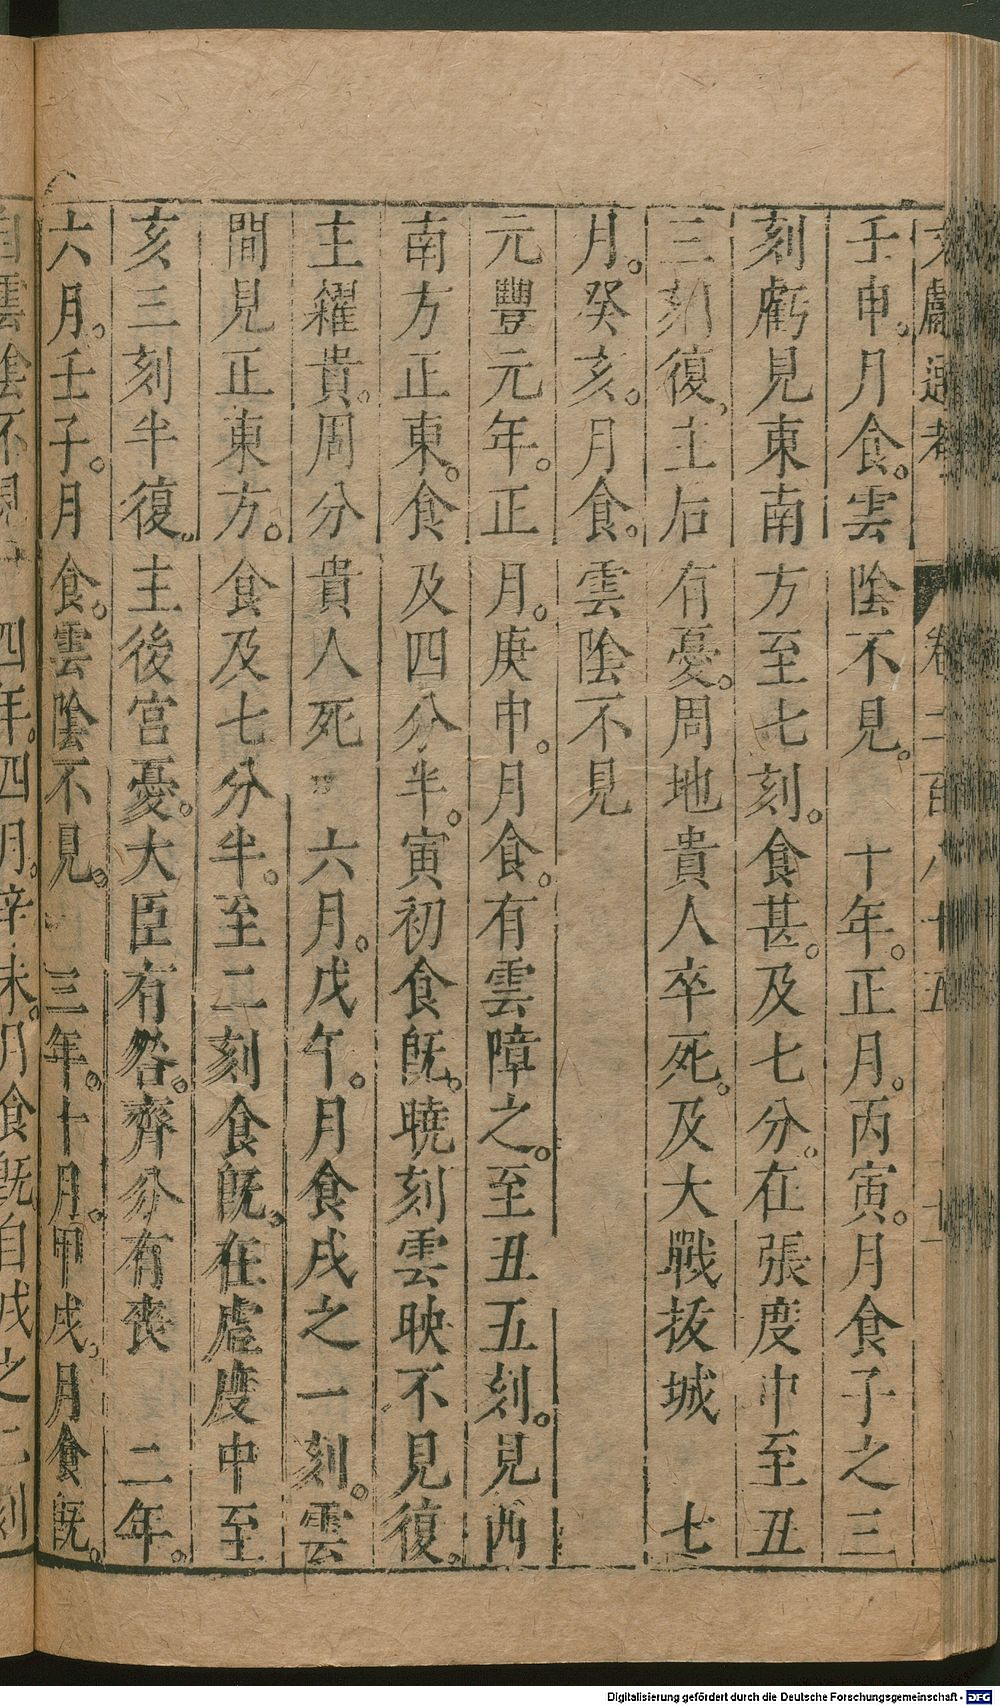 文獻通考 卷二百八十五 十一
壬申。月食。雲陰不見。 十年。正月。丙寅。月食子之三
刻虧見東南方至七刻。食甚。及七分。在張度中至丑
三刻復。主后有憂。周地貴人卒死。及大戰拔城 七
月。癸亥。月食。雲陰不見
元豐元年。正月。庚申。月食。有雲障之。至丑五刻。見西
南方正東。食及四分半。寅初食旣。曉刻雲映不見復。
主糴貴。周分貴人死 六月。戊午。月食戌之一刻。雲
間見正東方。食及七分半。至二刻食旣。在虛度中至
亥三刻半復。主後宮憂。大臣有咎。齊分有喪 二年。
六月。壬子。月食。雲陰不見。 三年。十月。甲戌。月食旣。
自雲陰不見 四年。四月。辛未。月食旣自戌之二刻
Digitalisierung gefördert durch die Deutsche Forschungsgemeinschaft - DFG